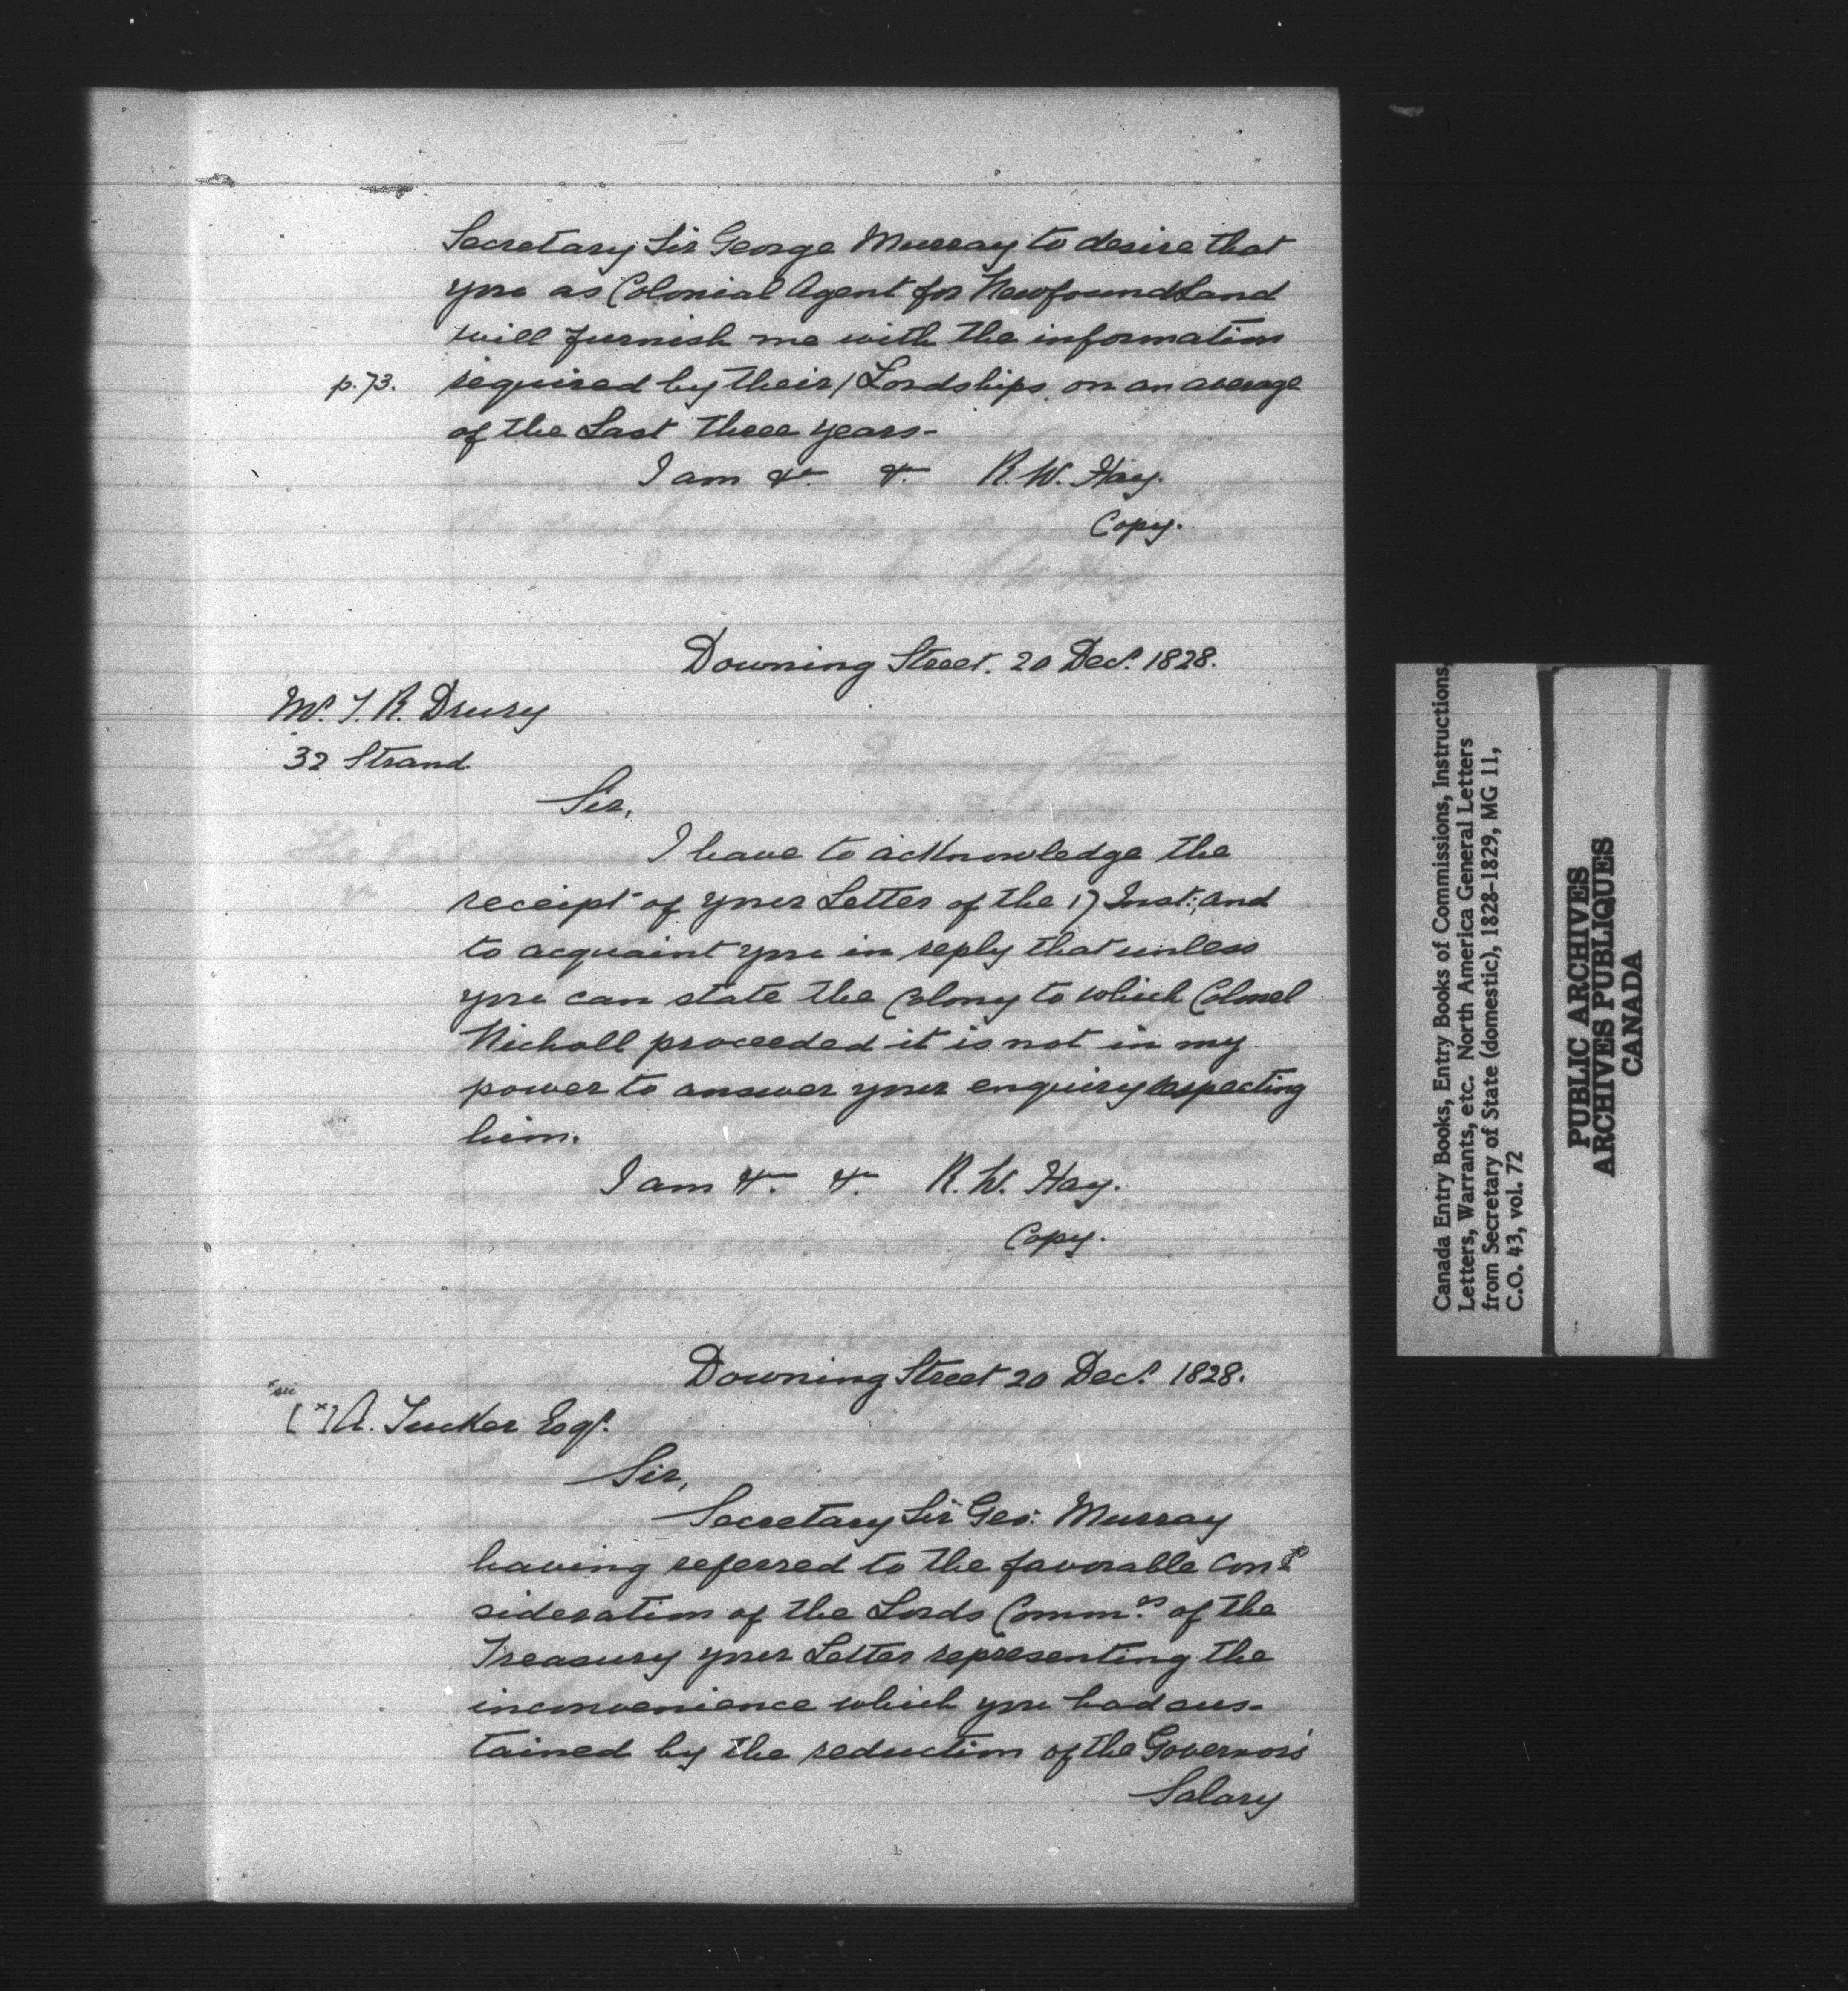 Secretary Sir George Murray to desire that
you as Colonial Agent for Newfoundland
will furnish me with the information
p. 73. required by their / Lordships, on an average
of the Last three years-
I am &c. &c. R. W. Hay.
Copy.
Downing Street. 20 Decr. 1828.
Mr. T. R. Drury
32 Strand
Sir,
I have to acknowledge the
receipt of your Letter of the 17 Inst: and
to acquaint you in reply that unless
you can state the Colony to which Colonel
Nicholl proceeded it is not in my
power to answer your enquiry respecting
him.
I am &c. &c. R. W. Hay.
Copy.
Downing Street 20 Decr. 1828.
x sic
[x] A. Tucker Esqr.
Sir,
Secretary Sir Geo: Murray
having referred to the favorable con-
sideration of the Lords Commrs of the
Treasury your Letter representing the
inconvenience which you had sus-
tained by the reduction of the Governor's
Salary
Canada Entry Books, Entry Books of Commissions, Instructions,
Letters, Warrants, etc. North America General Letters
from Secretary of State (domestic), 1828-1829, MG 11,
C.O. 43, vol. 72
PUBLIC ARCHIVES
ARCHIVES PUBLIQUES
CANADA